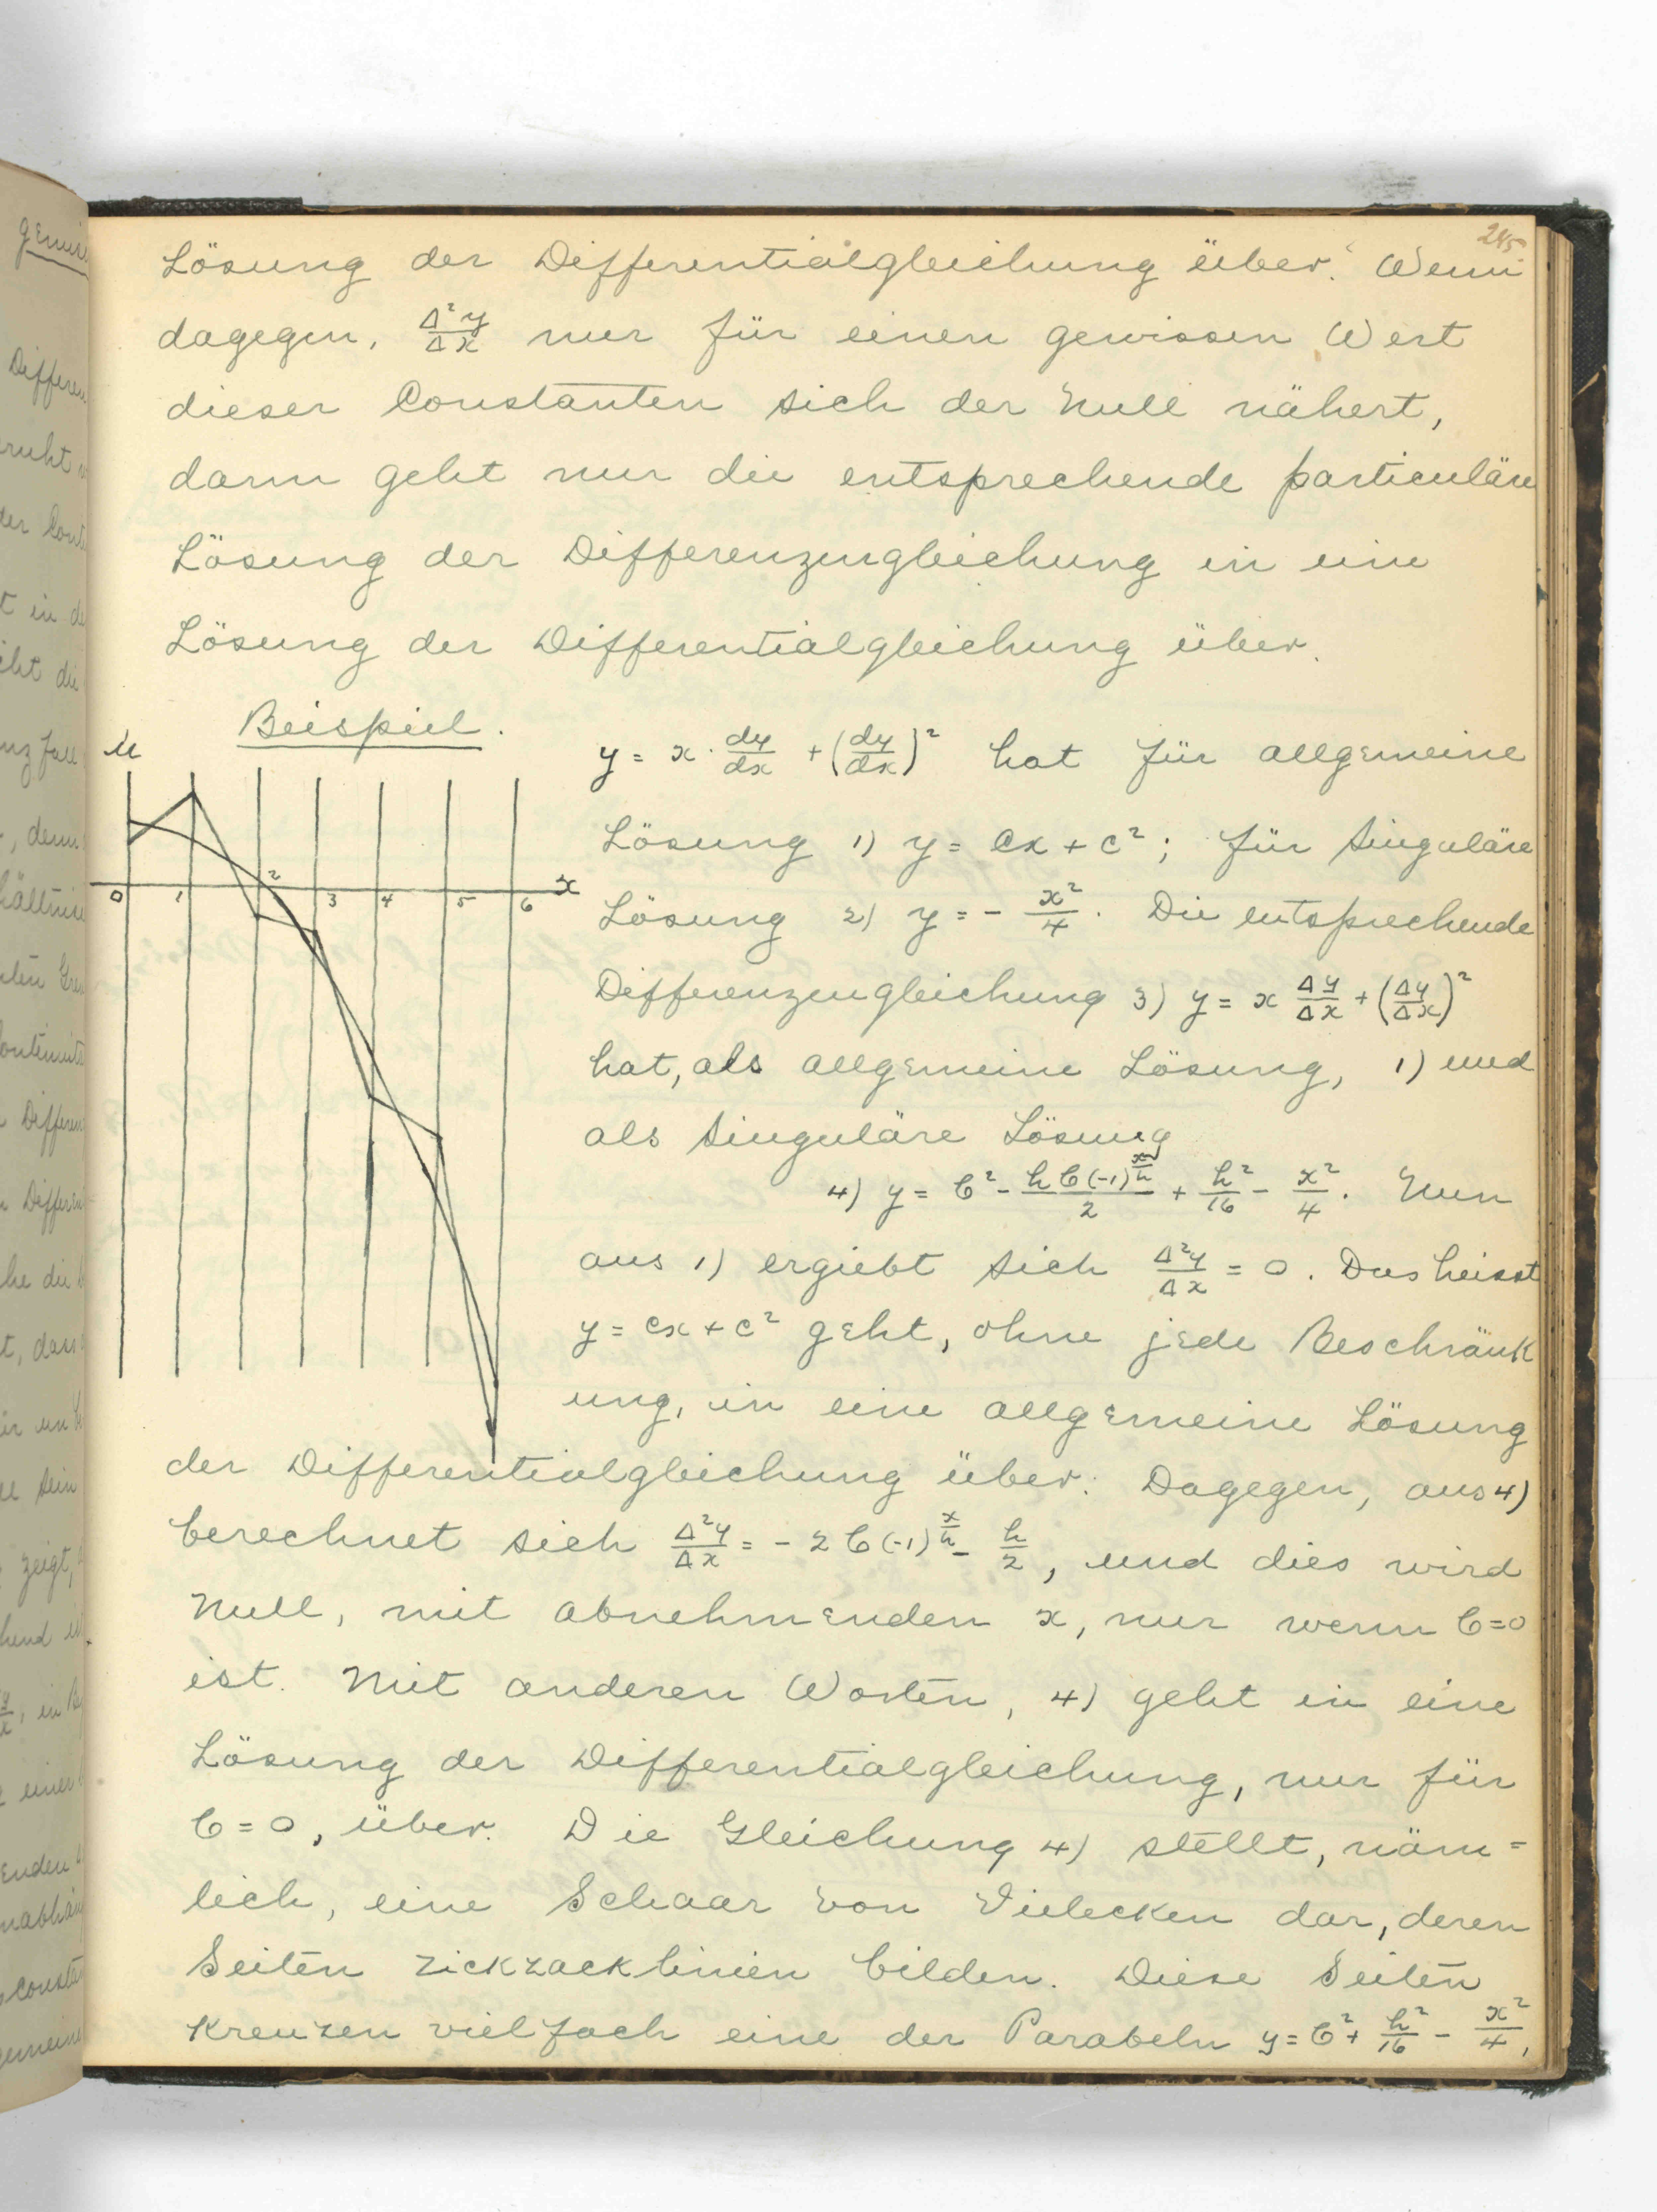 245
Lösung der Differentialgleichung über. Wenn
dagegen, Δ²y/Δx nur für einen gewissen Wert
dieser Constanten sich der Null nähert,
dann geht nur die entsprechende particuläre
Lösung der Differenzengleichung in eine
Lösung der Differentialgleichung über.
Beispiel.
y = x · dy/dx + (dy/dx)² hat für allgemeine
Lösung 1) y = cx + c²; für Singuläre
Lösung 2) y = - x²/4. Die entsprechende
Differenzengleichung 3) y = x Δy/Δx + (Δy/Δx)²
hat, als allgemeine Lösung, 1) und
als Singuläre Lösung
4) y = b² - hb(-1)^(x/h)/2 + h²/16 - x²/4. Nun
aus 1) ergiebt sich Δ²y/Δx = 0. Das heisst
y = cx + c² geht, ohne jede Beschränk
ung, in eine allgemeine Lösung
der Differentialgleichung über. Dagegen, aus 4)
berechnet sich Δ²y/Δx = - 2b(-1)^(x/h) - h/2, und dies wird
Null, mit abnehmenden x, nur wenn b=0
ist. Mit anderen Worten, 4) geht in eine
Lösung der Differentialgleichung, nur für
b = 0, über. Die Gleichung 4) stellt, näm=
lich, eine Schaar von Vielecken dar, deren
Seiten Zickzacklinien bilden. Diese Seiten
Kreuzen vielfach eine der Parabeln y = b² + h²/16 - x²/4,
x
0 1 2 3 4 5 6